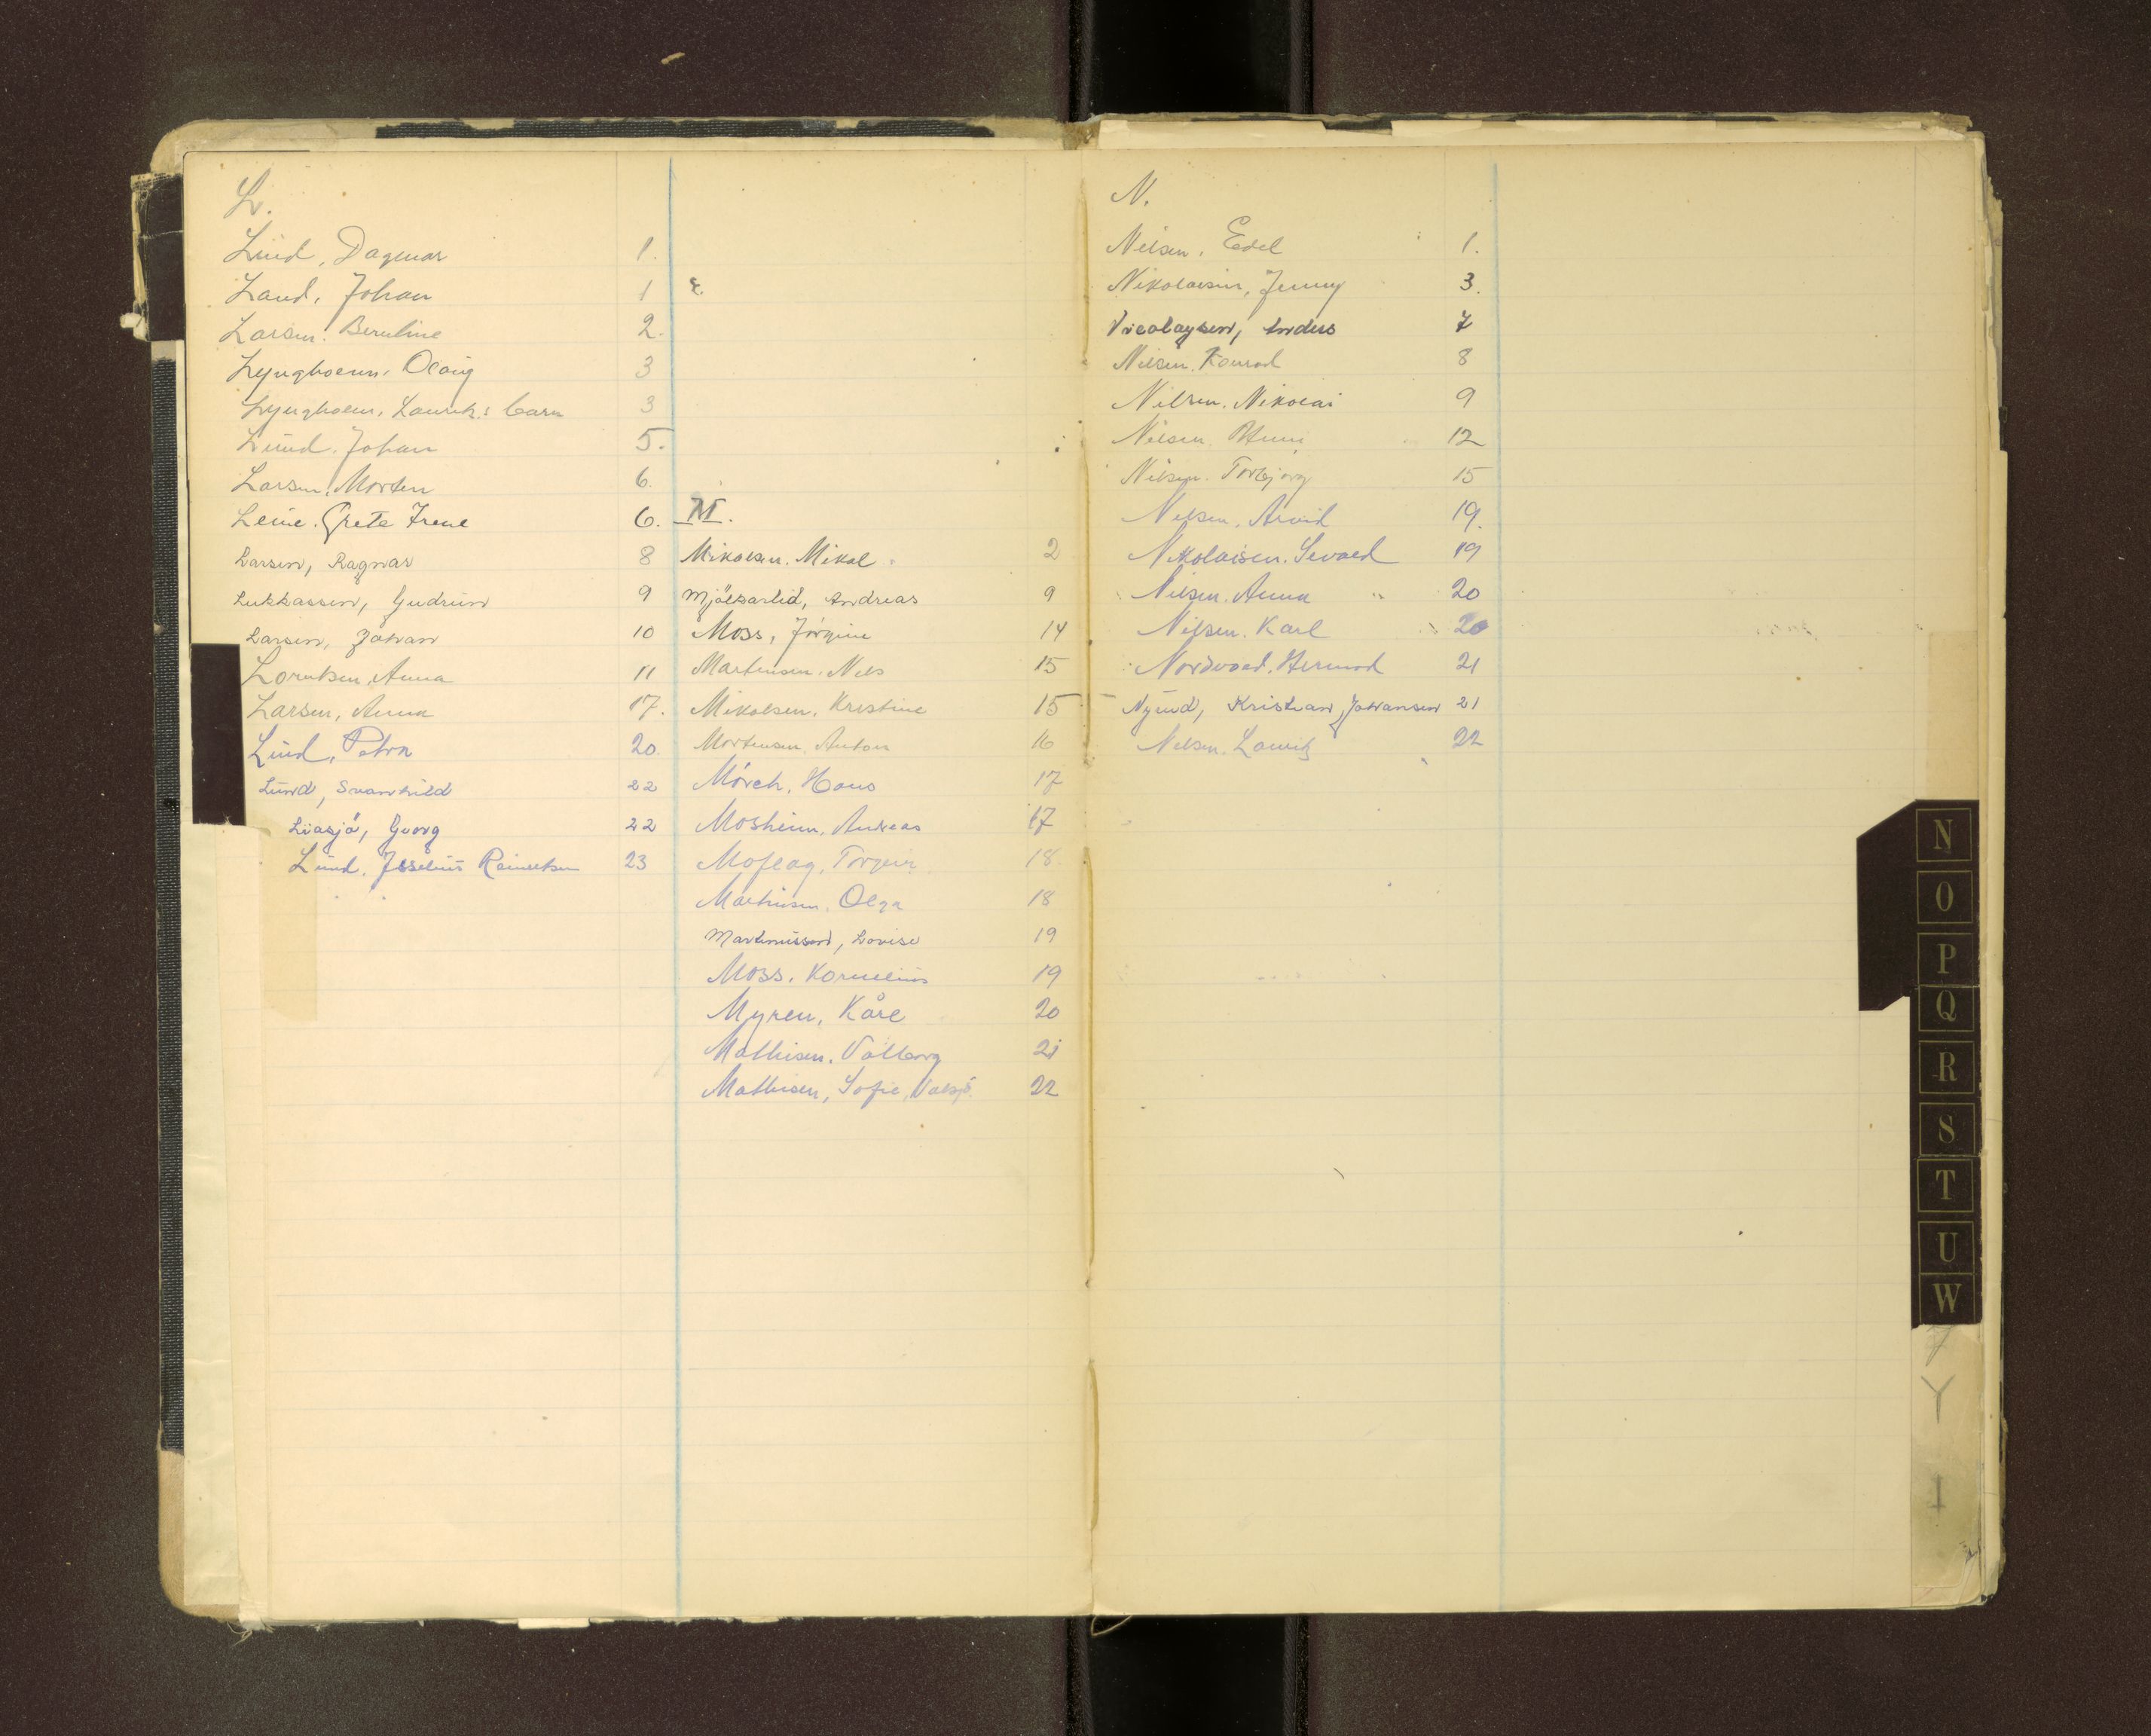 L.
Lund, Dagmar 1.
Land, Johan 1
Larsen, Bernline 2.
Lyngholm, Olaug 3
Lyngholm, Lauritz's barn 3
Lund, Johan 5.
Larsen, Morten 6.
Leine. Grete Irene 6.
Larsen, Ragnar 8
Lukkassen, Gudrun 9
Larsen, Johan 10
Lorntsen, Anna 11
Larsen, Anna 17.
Lund, Petra 20.
Lund, Svanhild 22
Liasjø, Georg 22
Lund. Reinertsen 23
M.
Mikalsen. Mikal 2
Mjölkarlid, Andreas 9
Moss, Jörgine 14
Martinsen. Nils 15
Mikalsen, Kristine 15
Mortensen, Anton 16
Mörch, Hans 17
Mosheim, Andreas 17
Moflag, Torgeir 18.
Mathisen. Olga 18
Martinussen, Lovise 19
Moss. Kornelius 19
Myren, Kåre 20
Mathisen. Valborg 21
Mathisen, Sofie, 22
N.
Nilsen, Edel 1.
Nikolaisen, Jenny 3.
Nicolaysen, Anders 7
Nilsen. Konrad 8
Nilsen. Nikolai 9
Nilsen. 12
Nilsen. Torbjörg 15
Nilsen, Arvid 19.
Nikolaisen. Sevald 19
Nilsen. Anna 20
Nilsen. Karl 20
Nordvald. Hermod 21
Nylund, Kristian Johansen 21
Nilsen. Lauritz 22
N
O
P
Q
R
S
T
U
W
Y